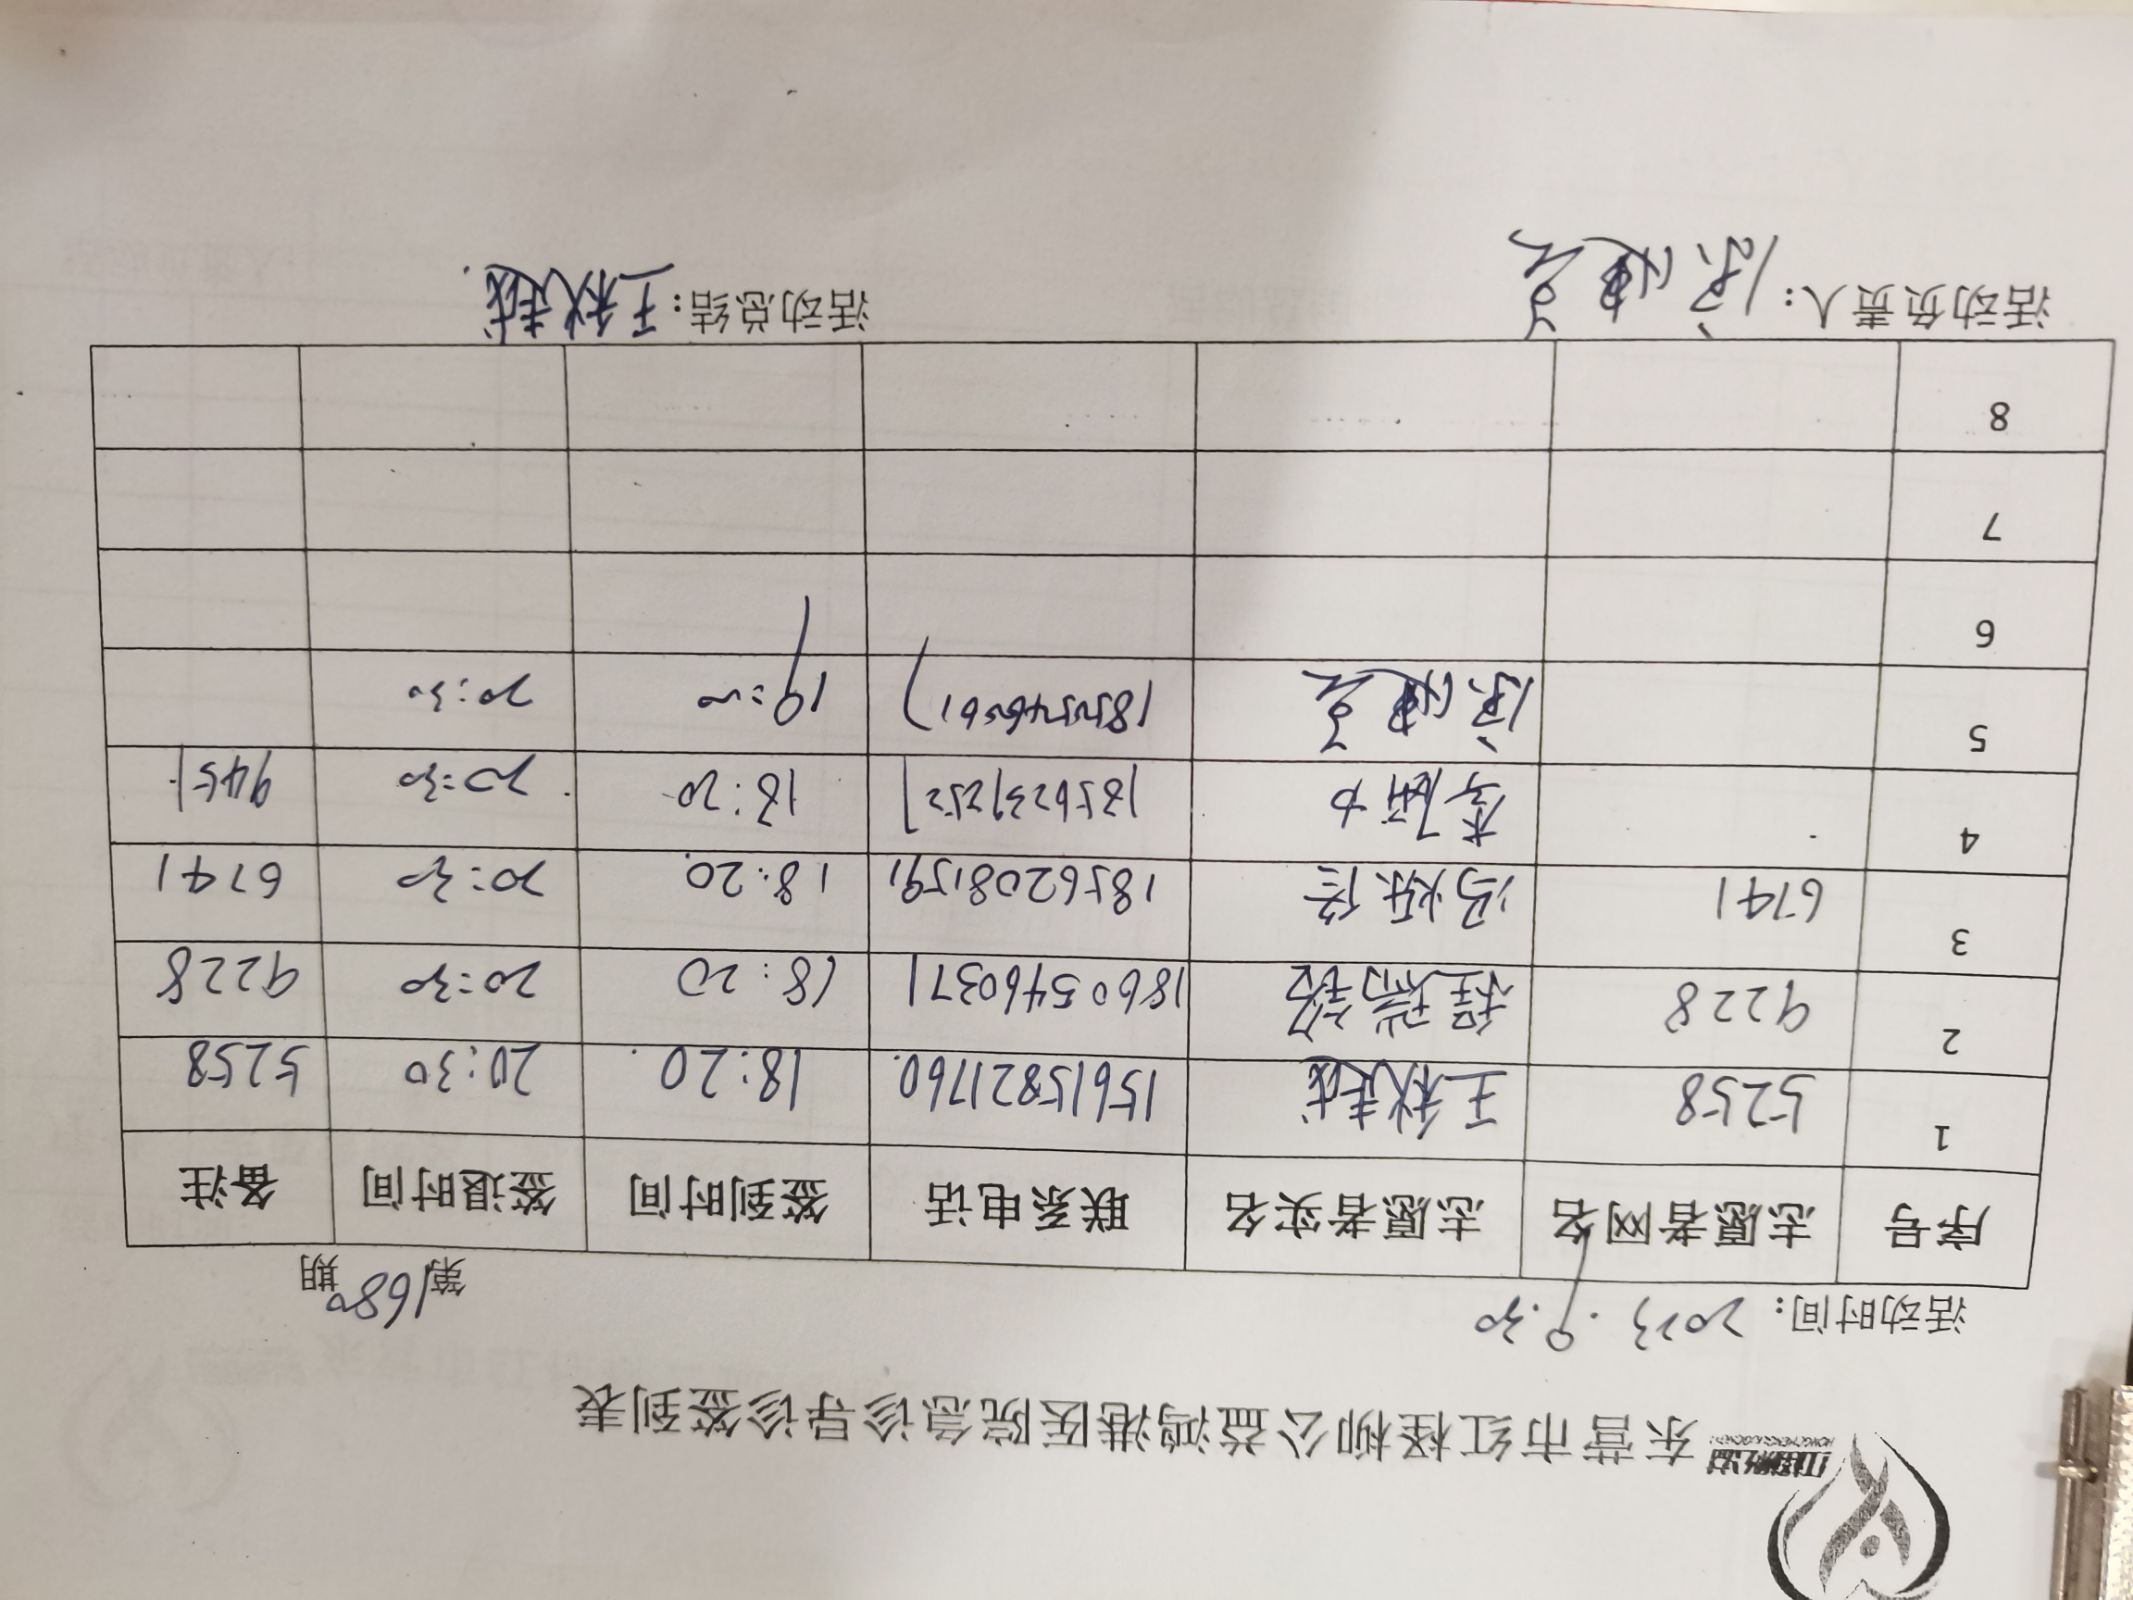 东营市红柽柳公益鸿港医院急诊导诊签到表
活动时间：2023.9.30 第1680期
序号 志愿者网名 志愿者实名 联系电话 签到时间 签退时间 备注
1 5258 王秋越 15615821760 18:20 20:30 5258
2 9228 程瑞 18605460371 18:20 20:30 9228
3 6741 冯 18562081591 18:20 20:30 6741
4 李 18:20 20:30 9451
5 19:00 20:30
6
7
8
活动负责人： 活动总结：王秋越